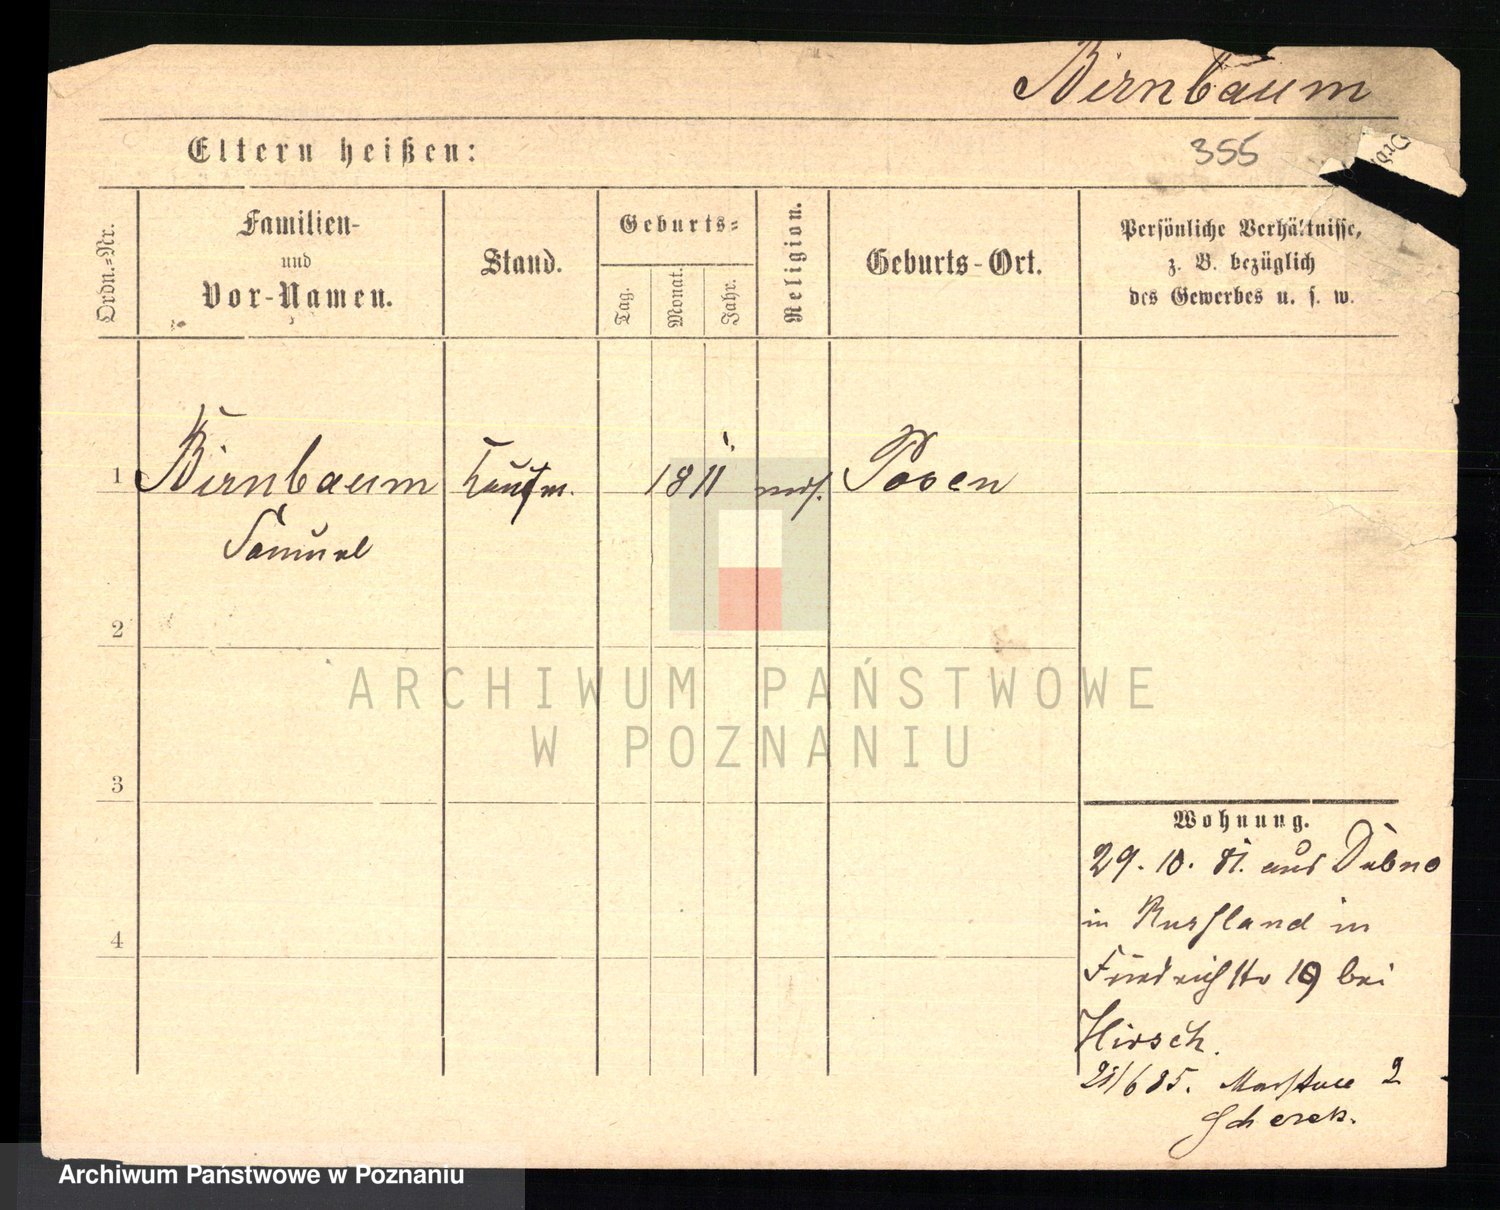 Birnbaum
Eltern heißen:
355
Ordn.-Nr.
Familien-
und
Vor-Namen.
Stand.
Geburts-
Tag.
Monat.
Jahr.
Religion.
Geburts-Ort.
Persönliche Verhältnisse,
z. B. bezüglich
des Gewerbes u. s. w.
1 Birnbaum Kaufm. 1811 mos. Posen
Samuel
2
3
4
Wohnung.
29. 10. 81. aus Dubno
in Russland in
Friedrichstr 19 bei
Hirsch.
21/6 85. 2
Scherek.
ARCHIWUM PAŃSTWOWE
W POZNANIU
Archiwum Państwowe w Poznaniu